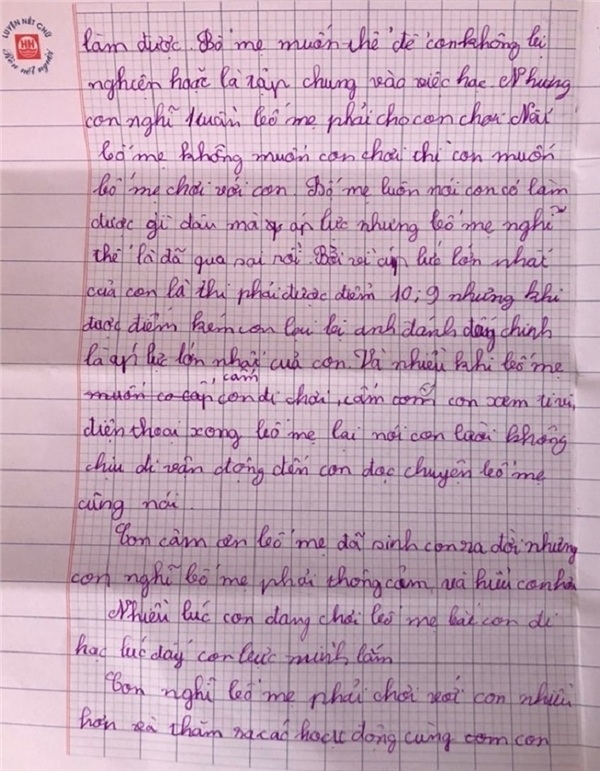 LUYỆN NÉT CHỮ
Rèn nết người
làm được. Bố mẹ muốn thế để con không bị
nghiên hoặc là tập chung vào việc học. Nhưng
con nghĩ tuần bố mẹ phải cho con chơi. Nếu
bố mẹ không muốn con chơi thì con muốn
bố mẹ chơi với con. Bố mẹ luôn nói con có làm
được gì đâu mà áp lực nhưng bố mẹ nghĩ
thế là đã quá sai rồi. Bởi vì áp lực lớn nhất
của con là thi phải được điểm 10; 9 nhưng khi
được điểm kém con lại bị anh đánh đấy chính
là áp lực lớn nhất của con. Và nhiều khi bố mẹ
cấm con đi chơi, cấm con xem ti vi,
điện thoại xong bố mẹ lại nói con lười không
chịu đi vận động đến con đọc chuyện bố mẹ
cũng nói.
Con cảm ơn bố mẹ đã sinh con ra đời nhưng
con nghĩ bố mẹ phải thông cảm, và hiểu con hơn
Nhiều lúc con đang chơi bố mẹ bắt con đi
học lúc đấy con bực mình lắm
Con nghĩ bố mẹ phải chơi với con nhiều
hơn và thăm ra các hoạt động cùng con